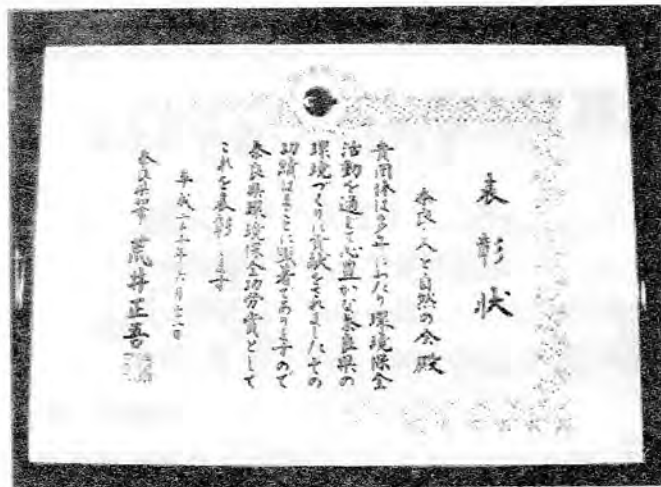 表彰状
奈良・人と自然の会殿
貴団体は多年にわたり環境保全
活動を通じて心豊かな奈良県の
環境づくりに貢献をされましたその
功績はまことに顕著でありますので
奈良県環境保全功労賞として
これを表彰します
平成二十年六月
奈良県知事 荒井正吾